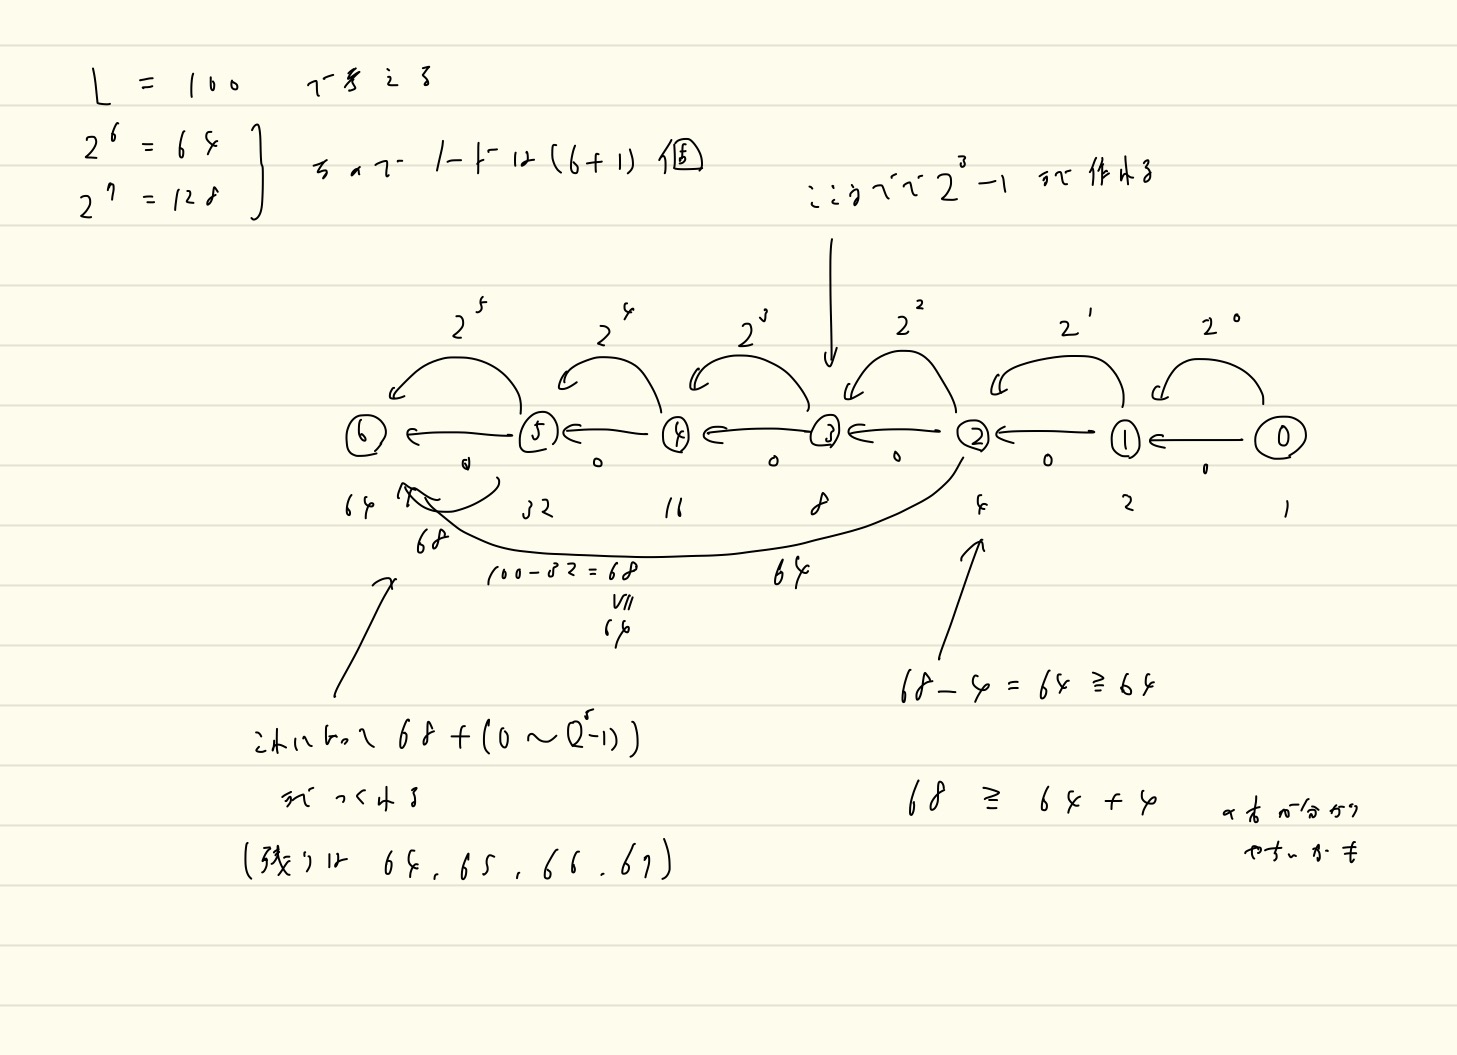 L = 100 で考える
2^6 = 64
2^7 = 128
なので ノードは (6+1) 個
ここまでで 2^3 - 1 まで作れる
2^5 2^4 2^3 2^2 2^1 2^0
6 5 4 3 2 1 0
0 0 0 0 0 0
64 32 16 8 4 2 1
68
100 - 32 = 68 64
VII
64
68 - 4 = 64 ≧ 64
これによって 68 + (0 ~ (2^5-1))
までつくれる
68 ≧ 64 + 4
の方が分かり
やすいかも
(残りは 64, 65, 66, 67)